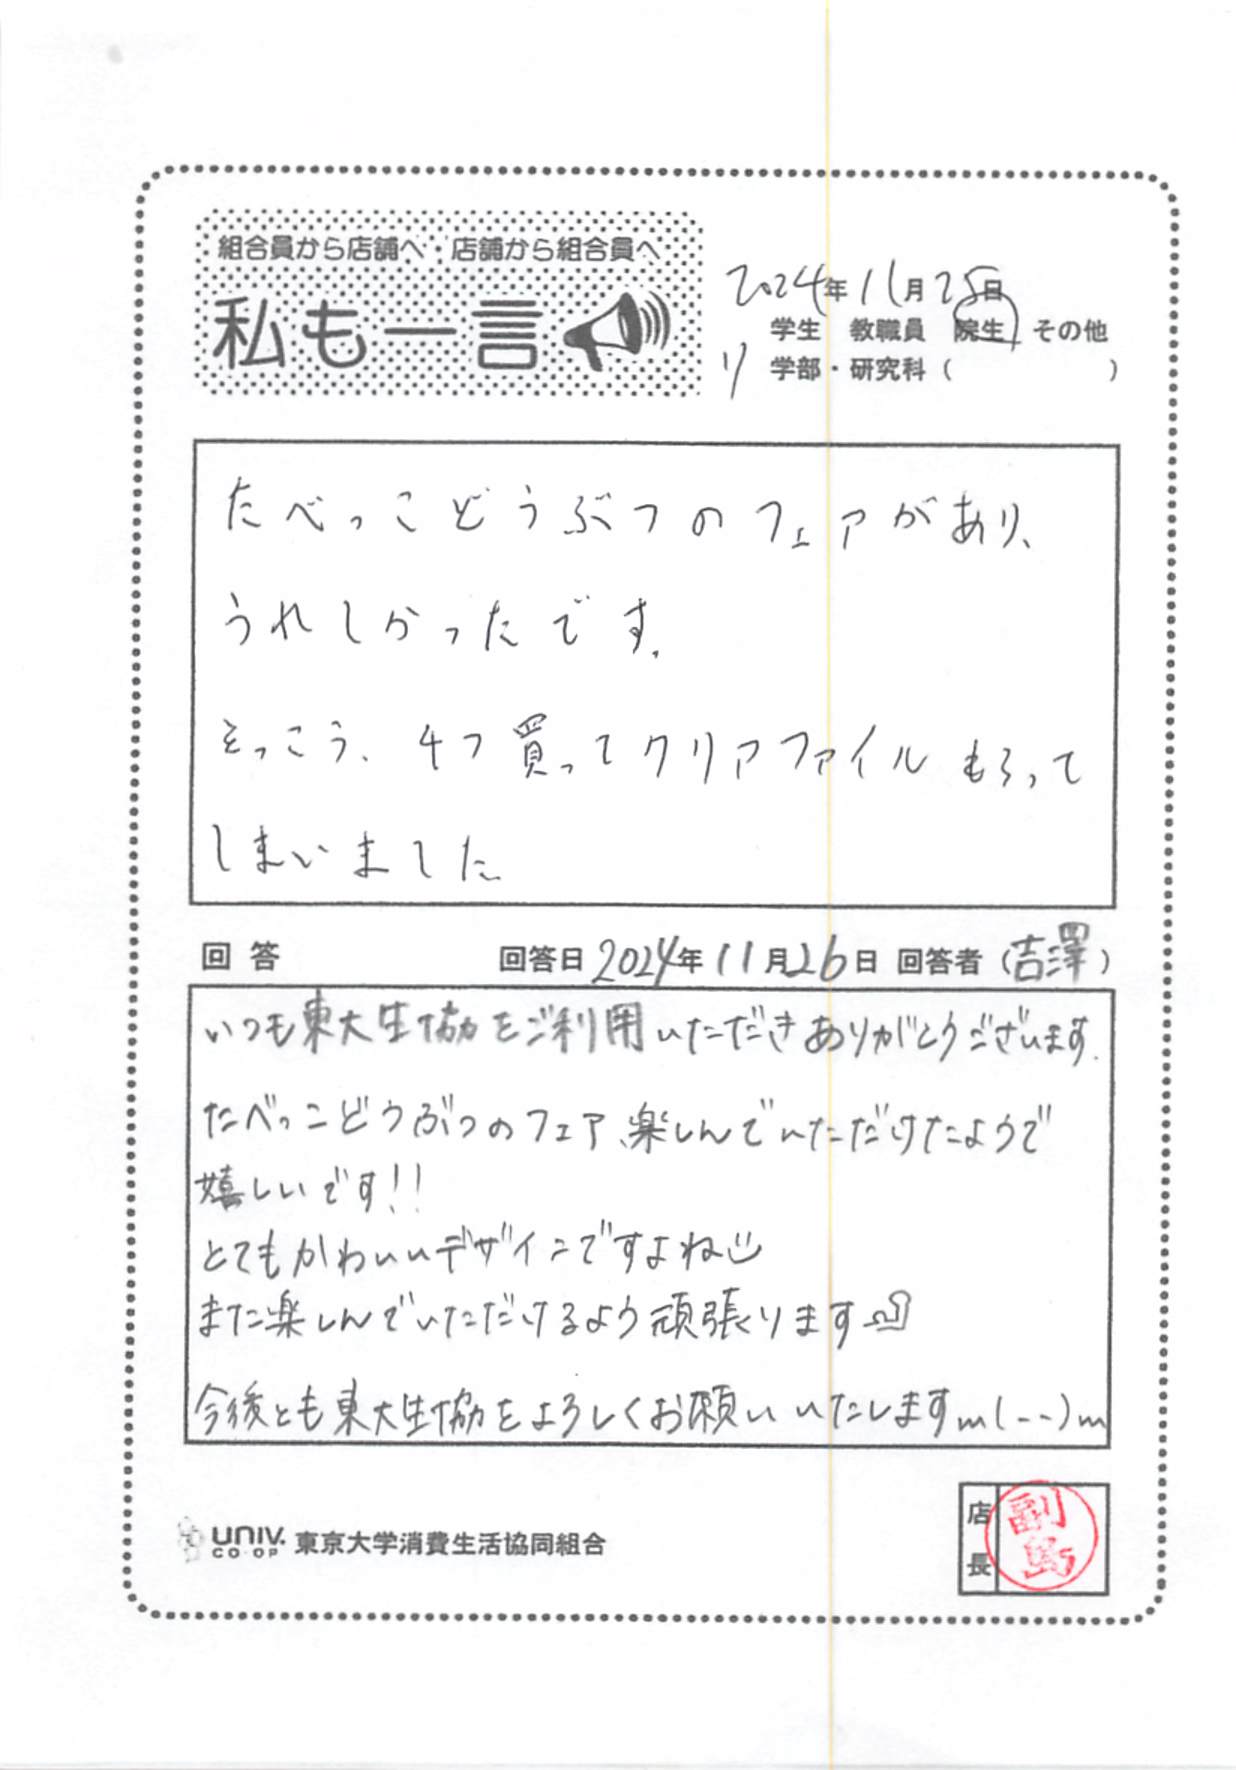 組合員から店舗へ・店舗から組合員へ
私も一言
2024年11月25日
学生 教職員 院生 その他
リ 学部・研究科( )
たべっこどうぶつのフェアがあり、
うれしかったです。
そっこう、4つ買ってクリアファイルもらって
しまいました
回答 回答日 2024年11月26日 回答者(吉澤)
いつも東大生協をご利用いただきありがとうございます.
たべっこどうぶつのフェア、楽しんでいただけたようで
嬉しいです!!
とてもかわいいデザインですよね
また楽しんでいただけるよう頑張ります
今後とも東大生協をよろしくお願いいたしますm(--)m
UNIV. CO・OP 東京大学消費生活協同組合
店長 副島